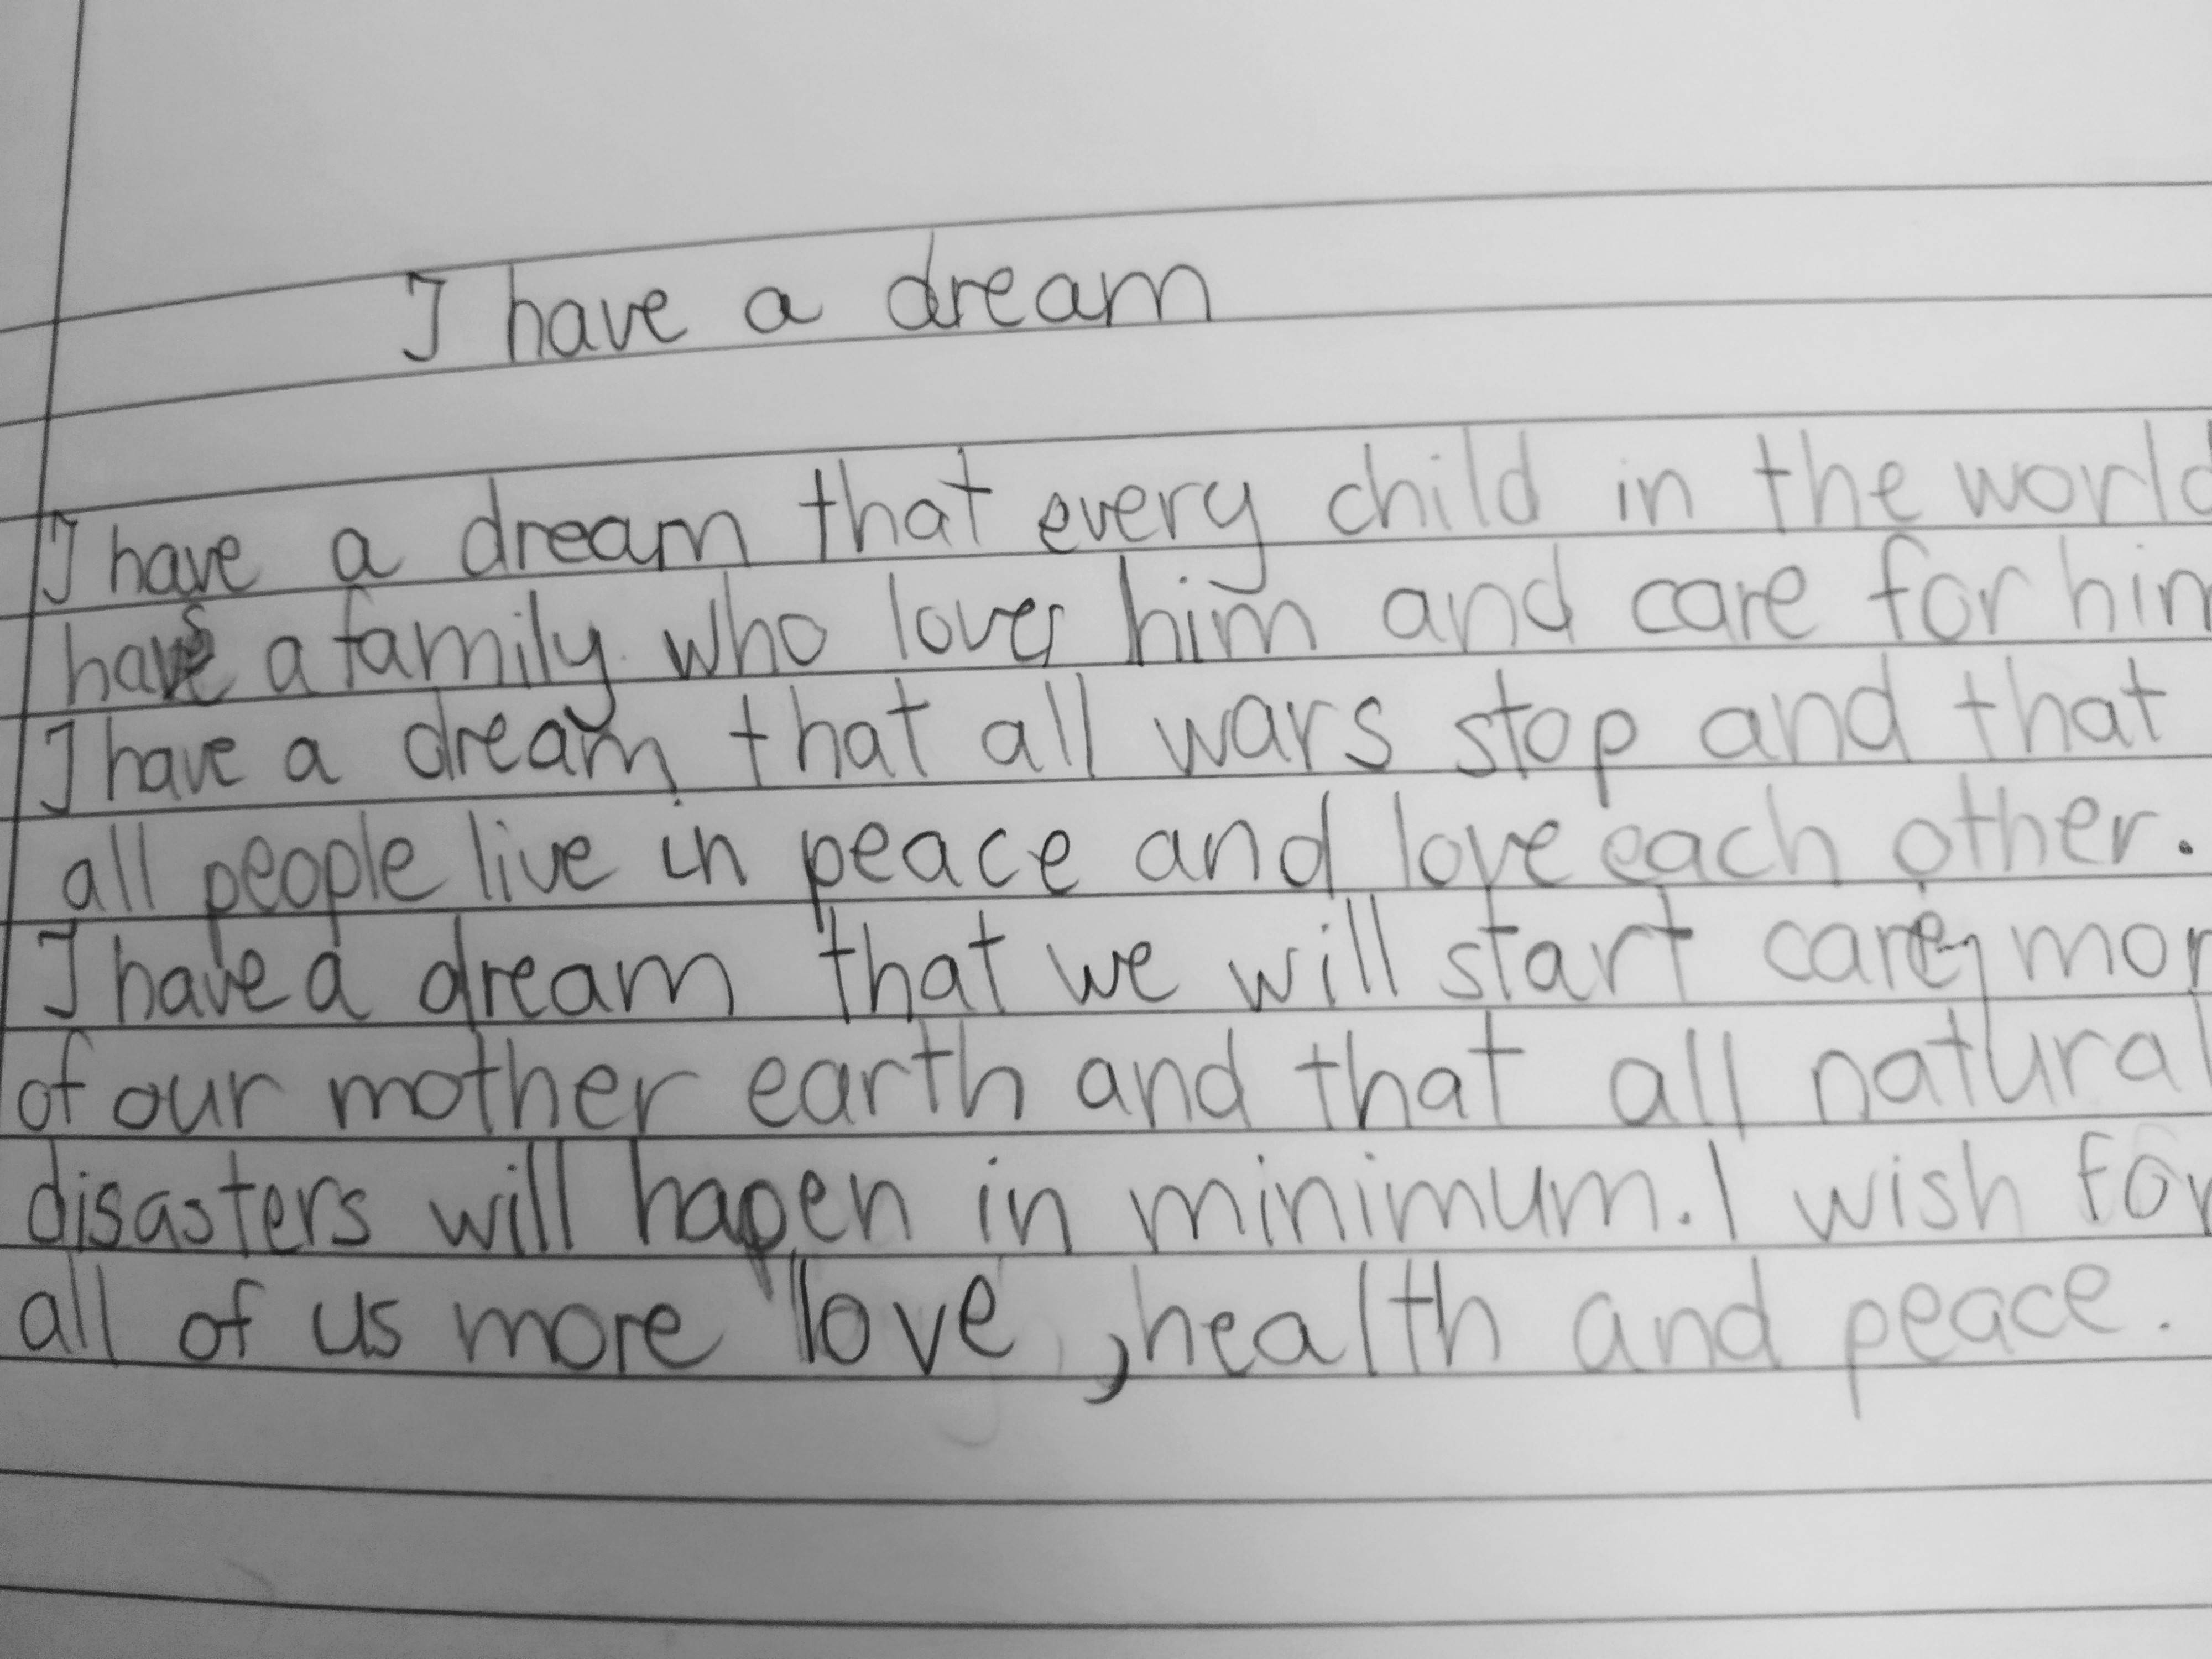 I have a dream
I have a dream that every child in the world
has a family who loves him and care for him
I have a dream that all wars stop and that
all people live in peace and love each other.
I have a dream that we will start care mor
of our mother earth and that all natural
disasters will hapen in minimum. I wish for
all of us more love, health and peace.